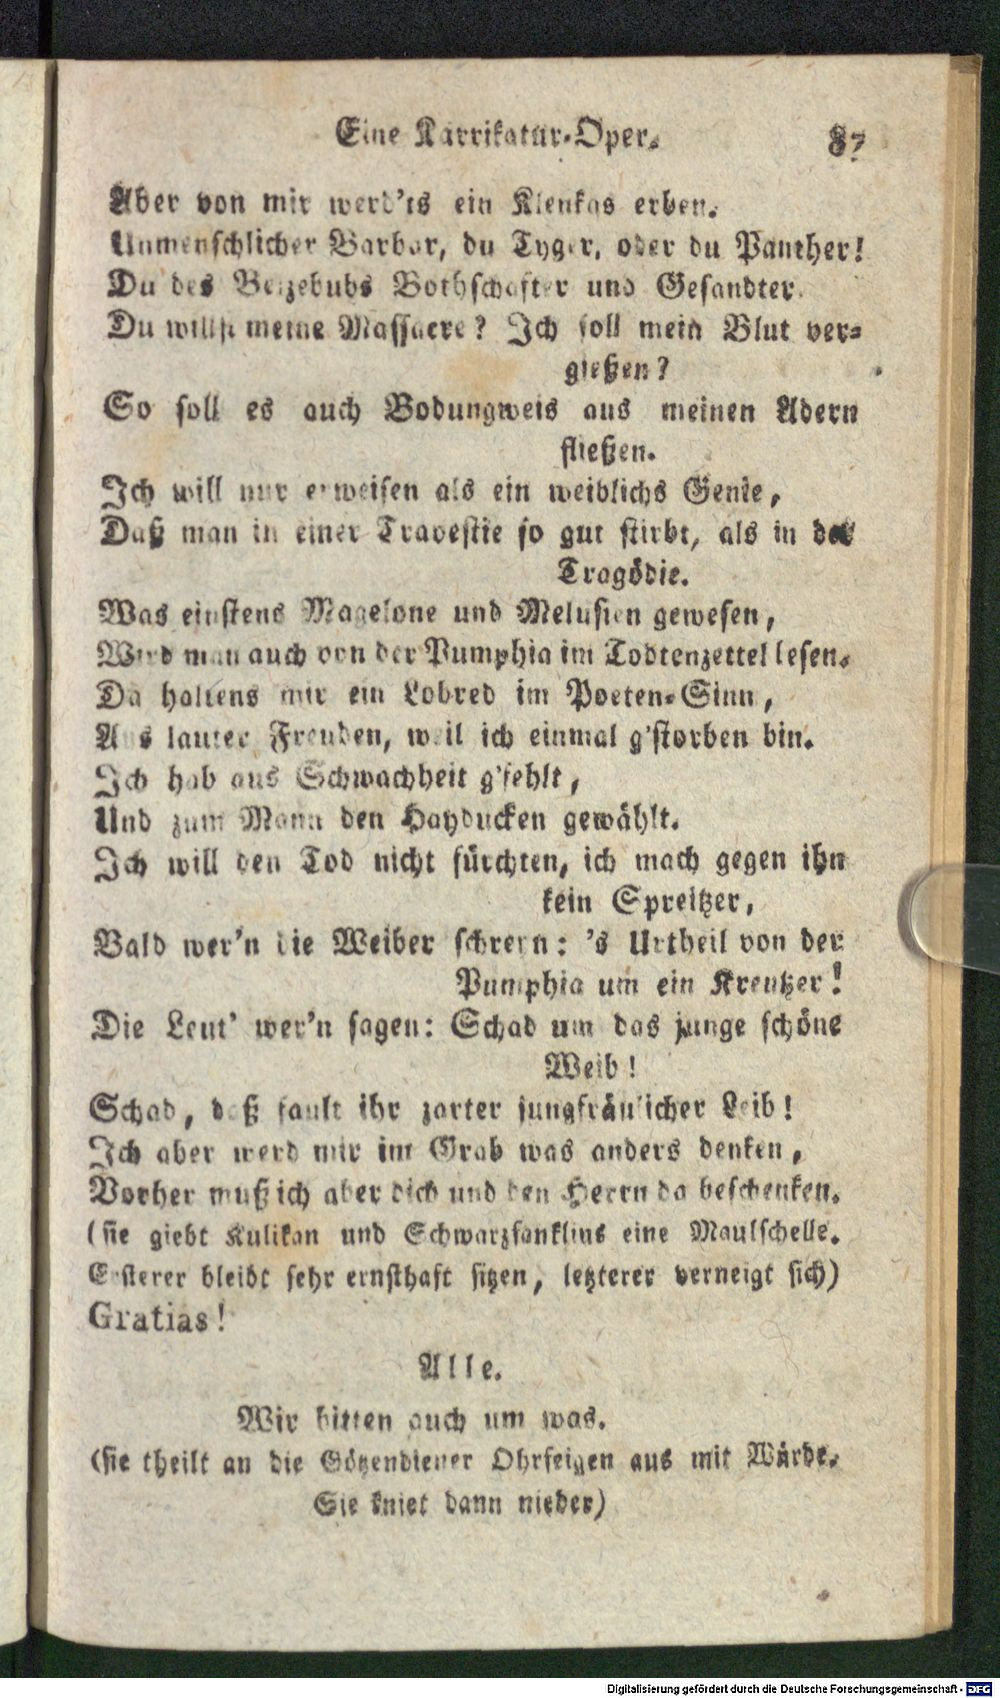 Eine Karrikatur-Oper. 87
Aber von mir werd'ts ein Klenkas erben.
Unmenschlicher Barbar, du Tyger, oder du Panther!
Du des Belzebubs Bothschafter und Gesandter.
Du willst meine Massacre? Ich soll mein Blut ver-
gießen?
So soll es auch Bodungweis aus meinen Adern
fließen.
Ich will nur erweisen als ein weiblichs Genie,
Daß man in einer Travestie so gut stirbt, als in der
Tragödie.
Was einstens Magelone und Melusien gewesen,
Wird man auch von der Pumphia im Todtenzettel lesen.
Da haltens mir ein Lobred im Poeten-Sinn,
Aus lauter Freuden, weil ich einmal g'storben bin.
Ich hab aus Schwachheit g'fehlt,
Und zum Mann den Hayducken gewählt.
Ich will den Tod nicht fürchten, ich mach gegen ihn
kein Spreitzer,
Bald wer'n die Weiber schreyn: 's Urtheil von der
Pumphia um ein Kreutzer!
Die Leut' wer'n sagen: Schad um das junge schöne
Weib!
Schad, daß fault ihr zarter jungfräulicher Leib!
Ich aber werd mir im Grab was anders denken,
Vorher muß ich aber dich und den Herrn da beschenken.
(sie giebt Kulikan und Schwarzsanklins eine Maulschelle.
Ersterer bleibt sehr ernsthaft sitzen, letzterer verneigt sich)
Gratias!
Alle.
Wir bitten auch um was.
(sie theilt an die Götzendiener Ohrfeigen aus mit Würde.
Sie kniet dann nieder)
Digitalisierung gefördert durch die Deutsche Forschungsgemeinschaft - DFG